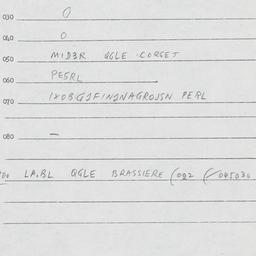 030 0
040 0
050 MID3R QGLE CORSET
060 PESRL
070 PERL
080 —
LA.BL QGLE BRASSIERE (022